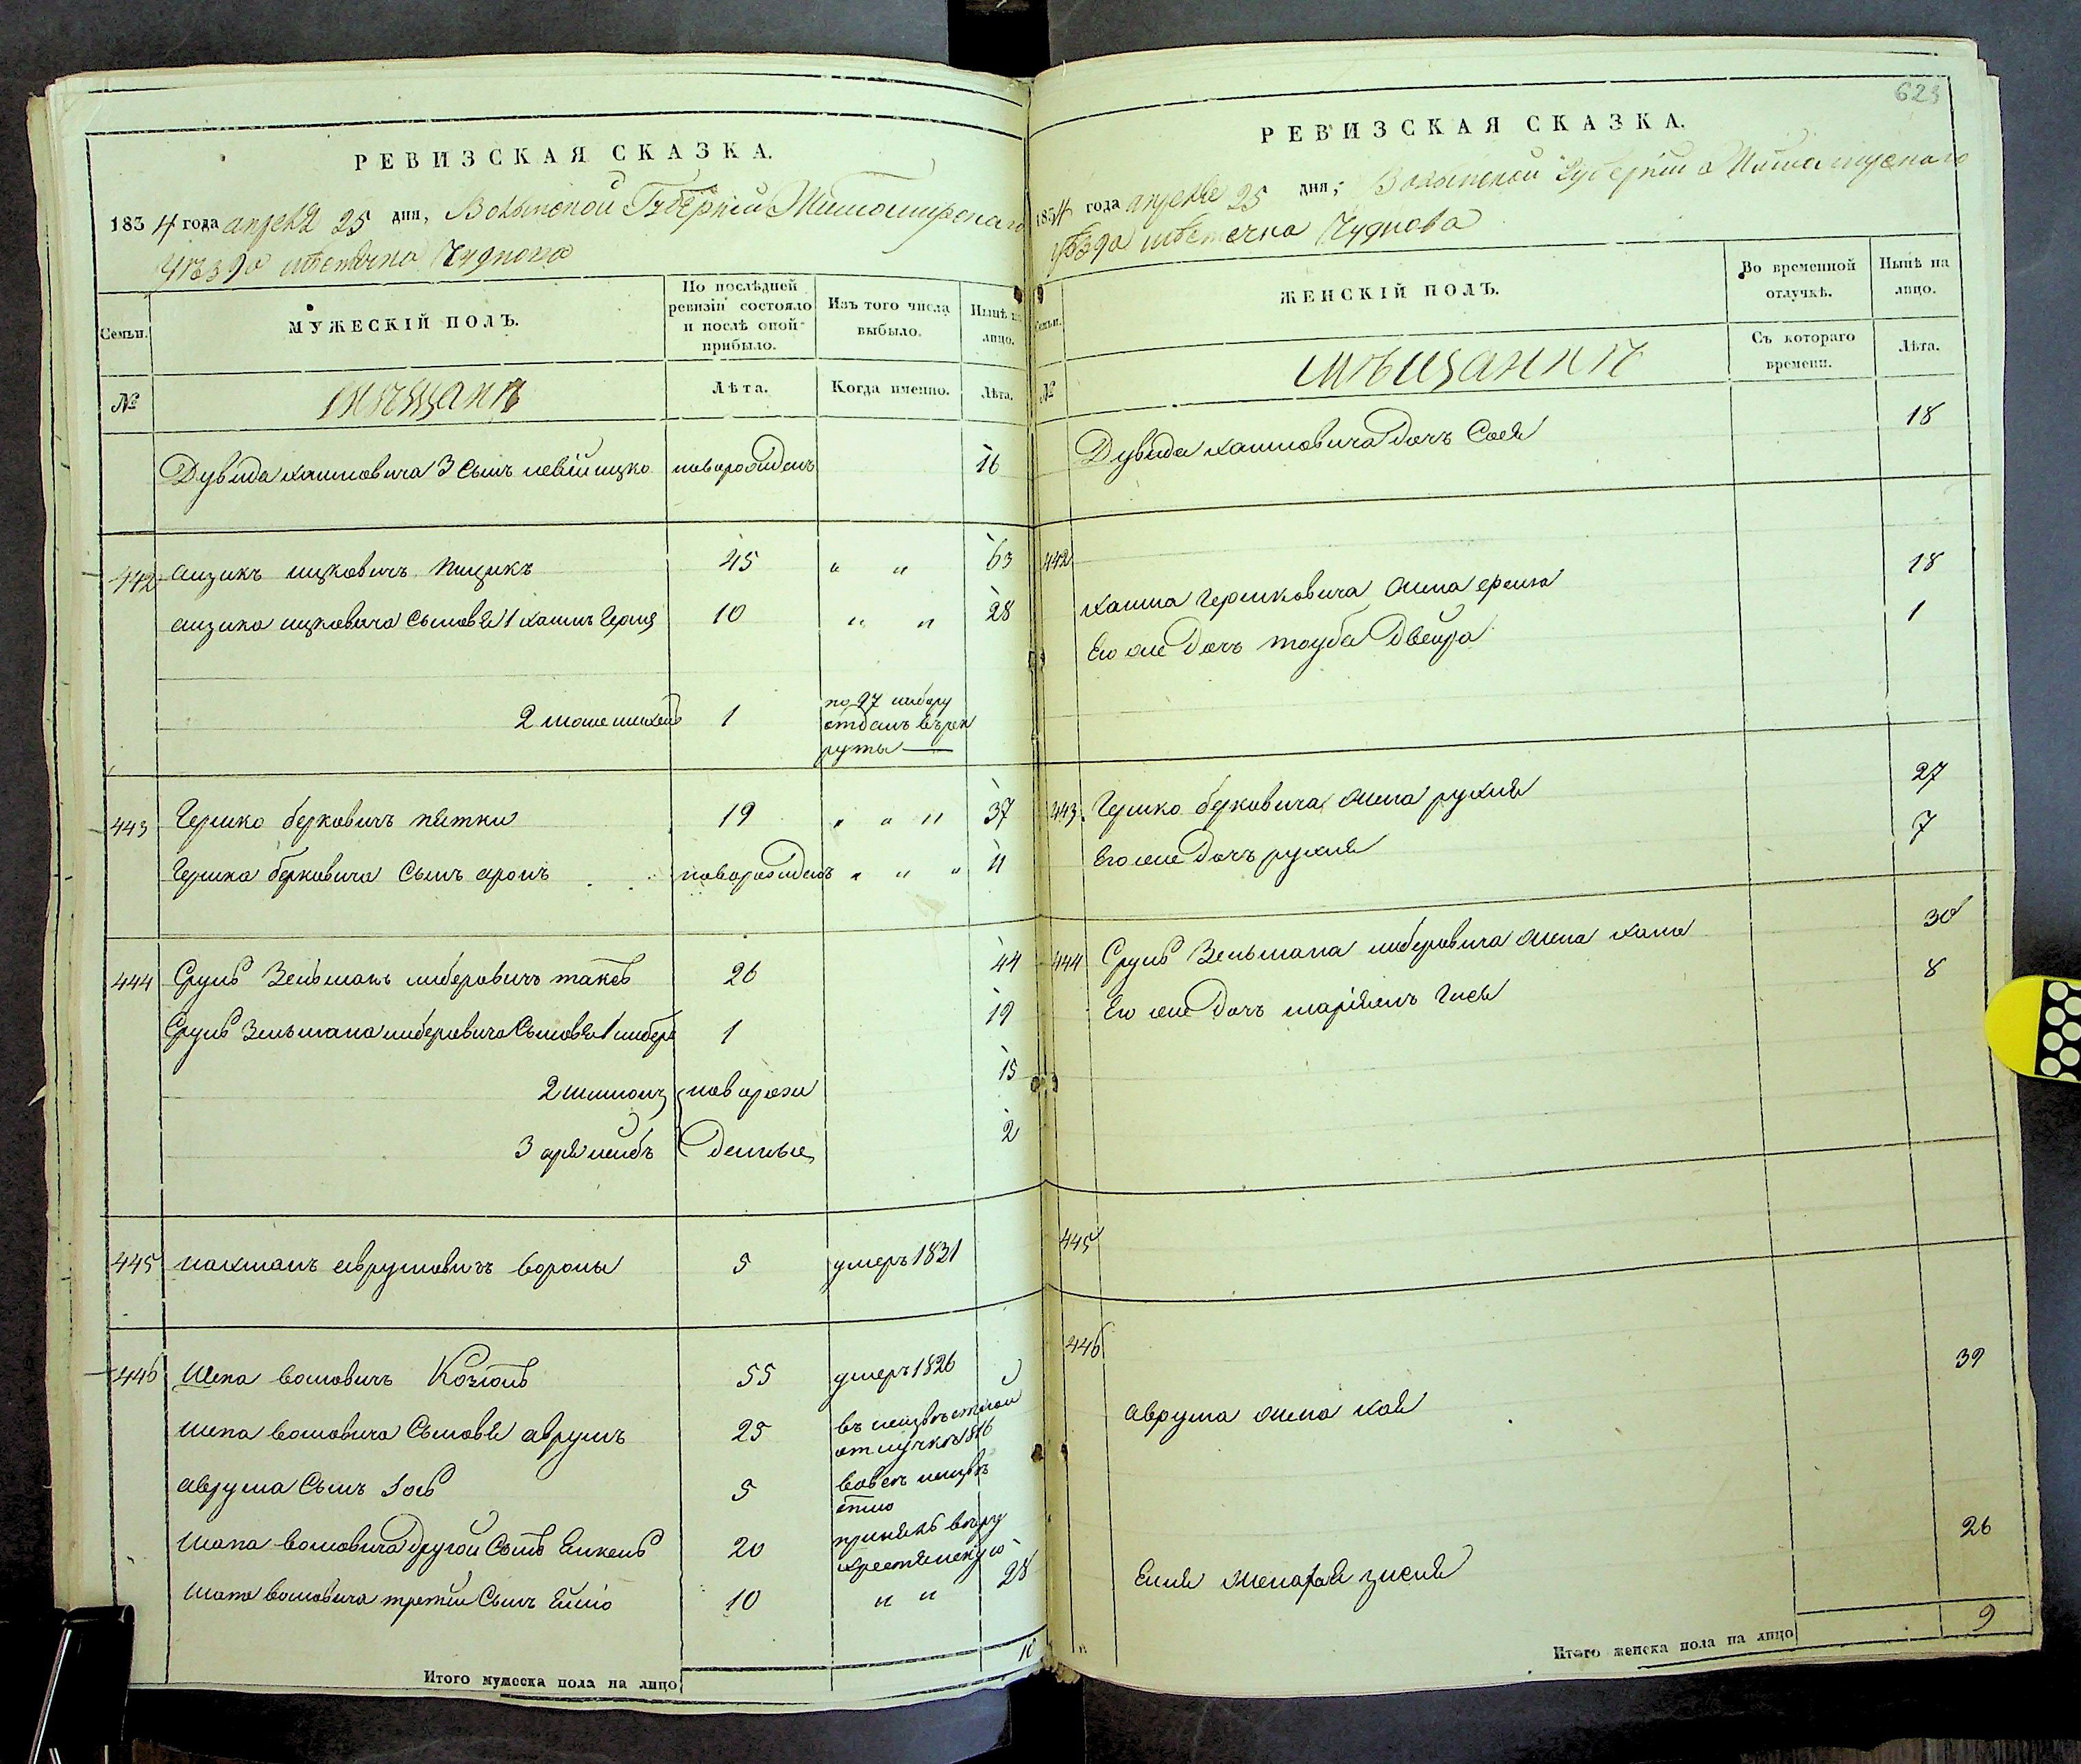 РЕВИЗСКАЯ СКАЗКА.
1834 года апреля 25 дня, Волынской Губернии Житомирскаго
Уезда местечка Чуднова
Семьи.
МУЖЕСКІЙ ПОЛЪ.
По послѣдней ревизіи состояло и послѣ оной прибыло.
Изъ того числа выбыло.
Нынѣ на лицо.
№
мещанъ
Лѣта.
Когда именно.
Лѣта.
Дувида Хаимовича 3 Сынъ левій ицко новорожденъ 16
442 аизикъ ицковичъ 45 " " 63
аизика ицковича Сыновья 1 хаимъ Герш 10 " " 28
2 1 по 27 набору отданъ въ рекруты
443 Гершко берковичъ пятки 19 " " " 37
Гершка берковича Сынъ аронъ новорожденъ " " " 11
444 Сруль Зельманъ либеровичъ 26 44
Сруль Зельмана либеровича Сыновья 1 либеръ 1 19
2 шимонъ новорож 15
3 арія лейбъ денные 2
445 нахманъ аврумовичъ вороны 5 умеръ 1821
446 Шепа волковичъ Козюль 55 умеръ 1826
Сыновья аврумъ 25 въ неизвѣстной отлучке 1816
аврума Сынъ Іось 5 вовсе неизвѣстно
другой Сынъ Янкель 20 принялъ веру христіянскую
третій Сынъ 10 " " 28
Итого мужеска пола на лицо 10
623
РЕВИЗСКАЯ СКАЗКА.
1834 года апреля 25 дня, Волынской Губерніи Житомирскаго
уѣзда мѣстечка Чуднова
Семьи.
ЖЕНСКІЙ ПОЛЪ.
Во временной отлучкѣ.
Нынѣ на лицо.
№
мѣщанки
Съ котораго времени.
Лѣта.
Дувида хаимовича дочь Сося 18
442
хаима Гершковича жена фейга 18
Его же дочъ тауба Двейра 1
443 Гершко берковича жена рухля 27
Его же дочъ рухля 7
444 Сруль Зельмана либеровича жена хана 30
Его же дочъ маріямъ Гися 8
445
446
аврума жена хая 39
жена хая зисля 26
Итого женска пола на лицо 9